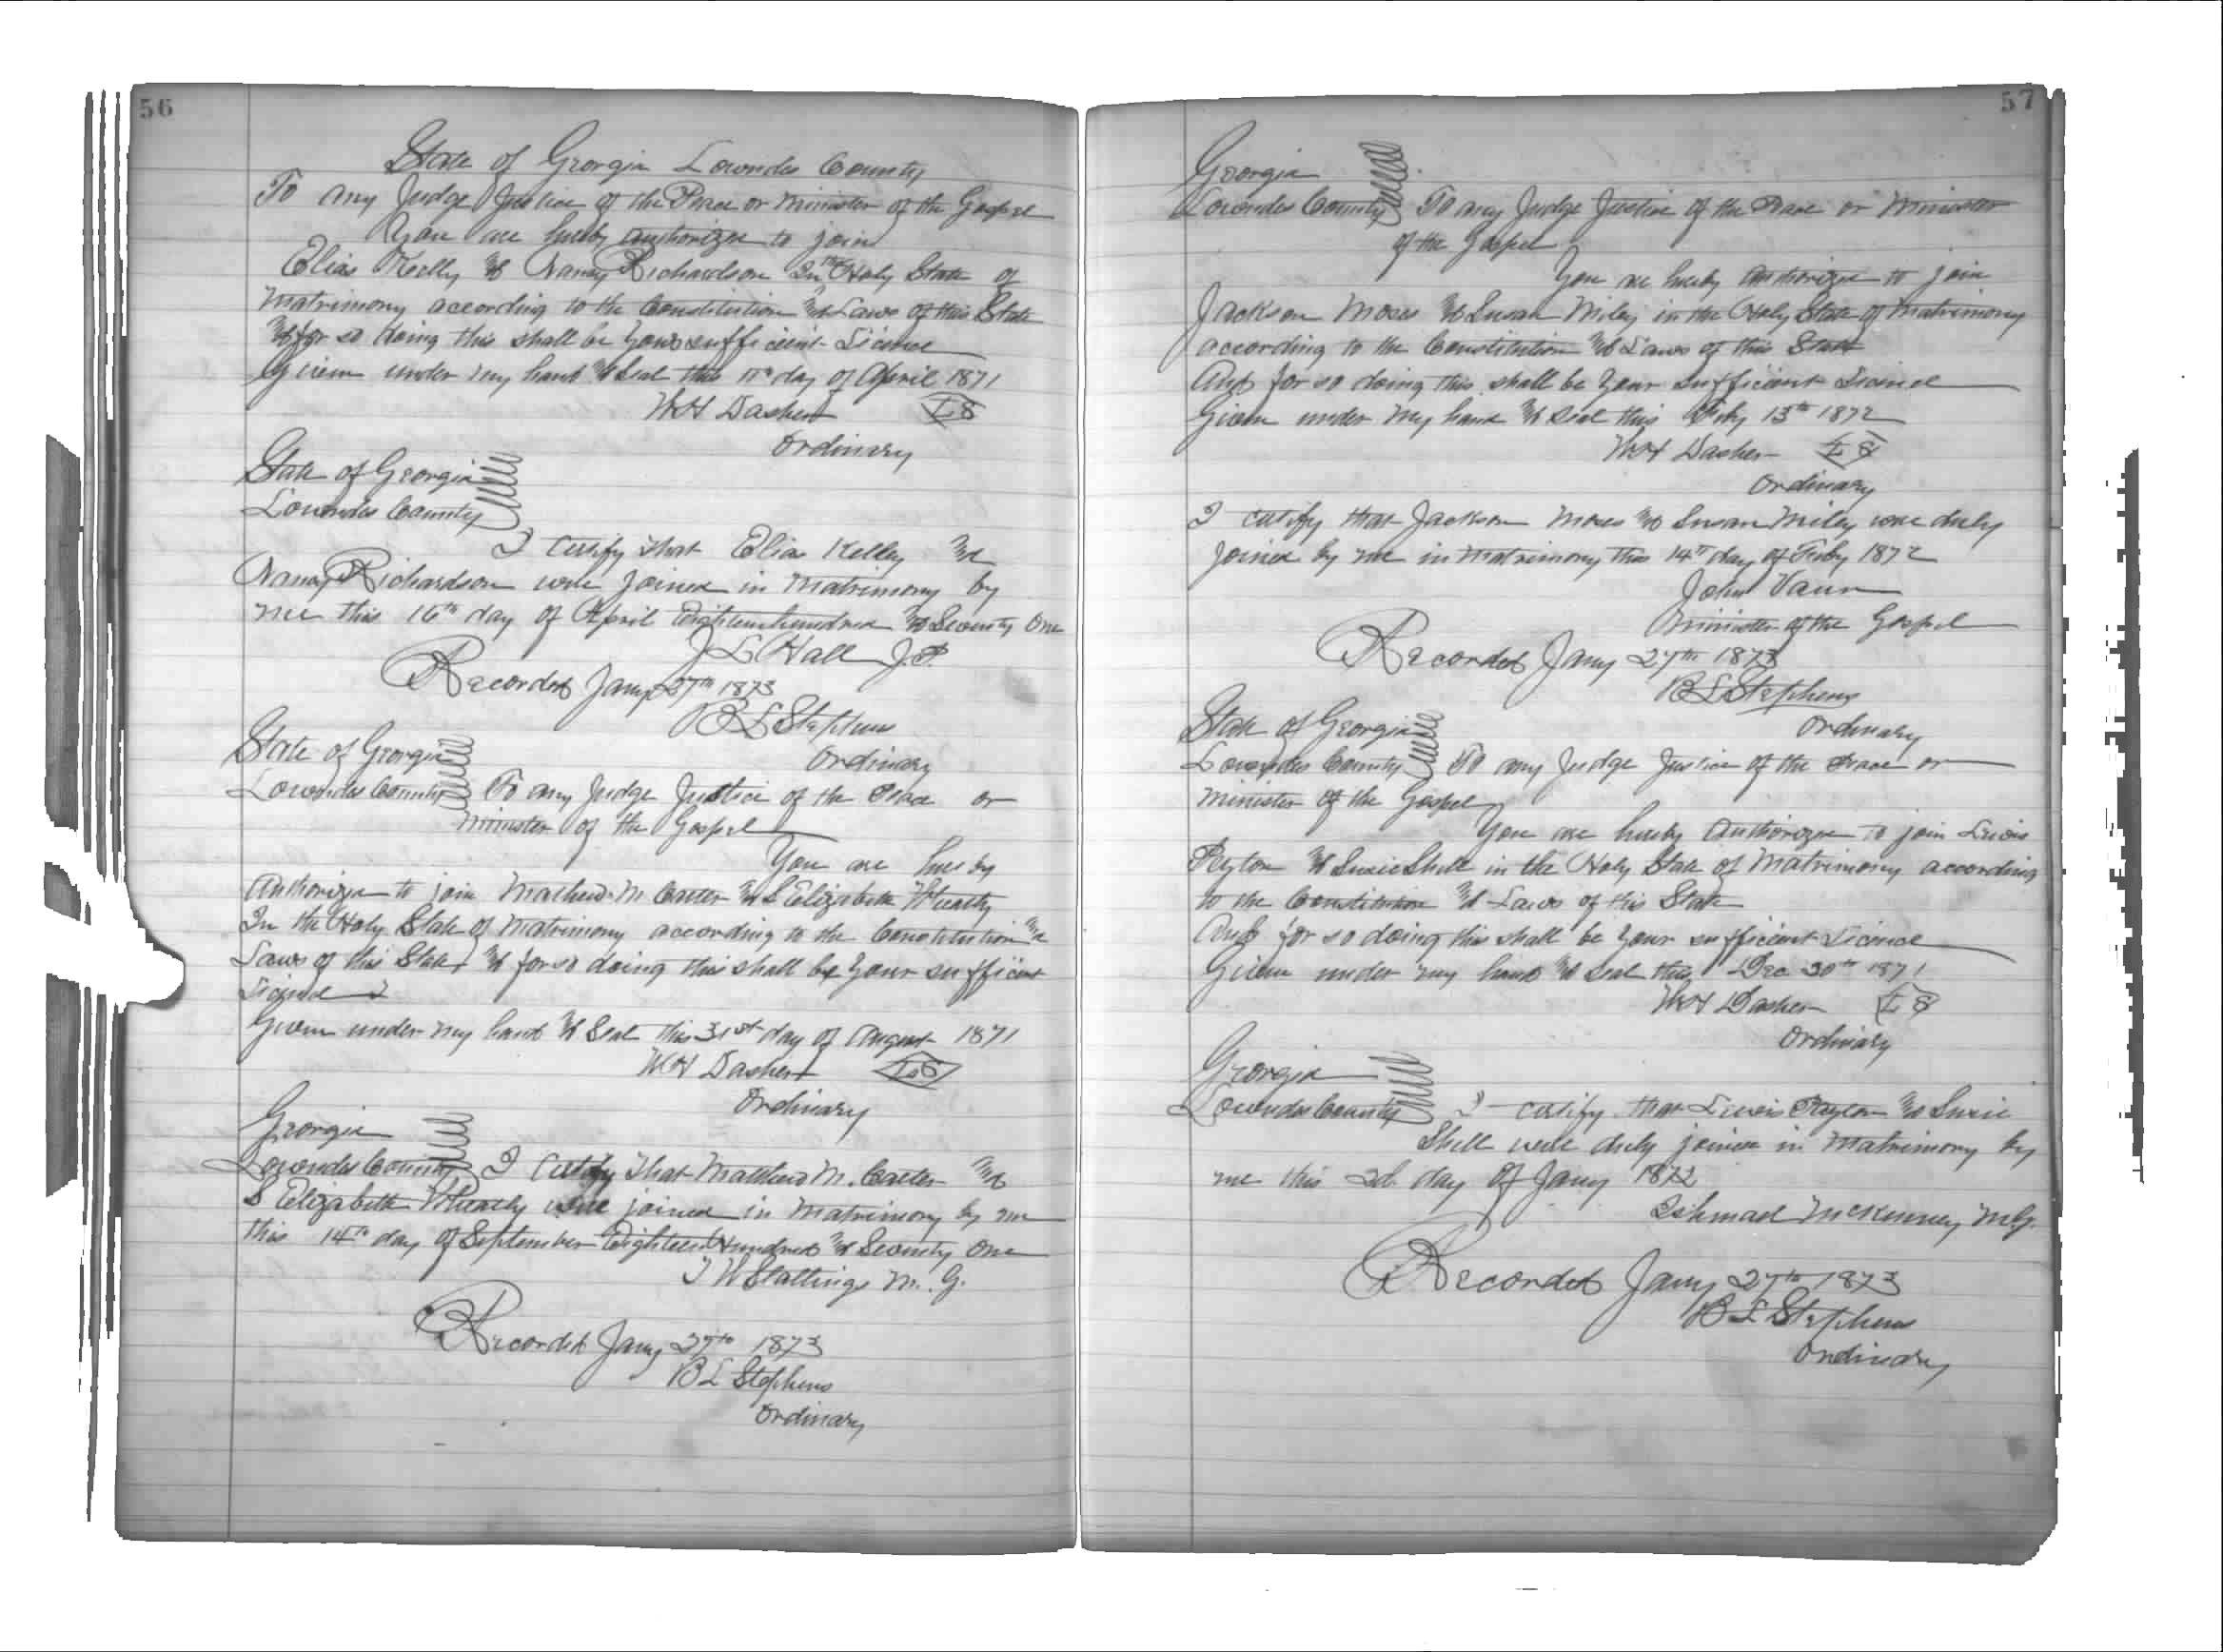 56
State of Georgia Lowndes County
To any Judge Justice of the Peace or Minister of the Gospel
You are hereby authorized to join
Elias Kelly & Nancy Richardson In the Holy State of
Matrimony according to the Constitution & Laws of this State
& for so doing this shall be your sufficient Licence
Given under my hand & Seal this 11th day of April 1871
W H Dasher L S
Ordinary
State of Georgia
Lowndes County
I certify that Elias Kelley &
Nancy Richardson were joined in Matrimony by
me this 16th day of April Eighteen hundred & Seventy One
J L Hall J.P.
Recorded Jany 27th 1873
B L Stephens
Ordinary
State of Georgia
Lowndes County To any Judge Justice of the Peace or
Minister of the Gospel
You are hereby
Authorized to join Mathew M Carter & S Elizabeth Wheatly
In the Holy State of Matrimony according to the Constitution &
Laws of this State & for so doing this shall be your sufficient
Licence
Given under my hand & Seal this 31st day of August 1871
W H Dasher L S
Ordinary
Georgia
Lowndes County I certify that Matthew M. Carter &
S Elizabeth Wheatly were joined in Matrimony by me
this 14th day of September Eighteen Hundred & Seventy One
T W Stallings M. G.
Recorded Jany 27th 1873
B L Stephens
Ordinary
57
Georgia
Lowndes County To any Judge Justice of the Peace or Minister
of the Gospel
You are hereby authorized to join
Jackson Moses & Susan Miley in the Holy State of Matrimony
according to the Constitution & Laws of this State
And for so doing this shall be your sufficient Licence
Given under my hand & seal this Feby 13th 1872
W H Dasher L S
Ordinary
I certify that Jackson Moses & Susan Miley were duly
joined by me in Matrimony this 14th day of Feby 1872
John Vann
Minister of the Gospel
Recorded Jany 27th 1873
B L Stephens
Ordinary
State of Georgia
Lowndes County To any Judge Justice of the Peace or
Minister of the Gospel
You are hereby Authorized to join Lewis
Peyton & Susie Shell in the Holy State of Matrimony according
to the Constitution & Laws of this State
And for so doing this shall be your sufficient Licence
Given under my hand & seal this Dec 30th 1871
W H Dasher L S
Ordinary
Georgia
Lowndes County I certify that Lewis Peyton & Susie
Shell were duly joined in Matrimony by
me this 2d day of Jany 1872
Ishmael McKinney M.G.
Recorded Jany 27th 1873
B L Stephens
Ordinary